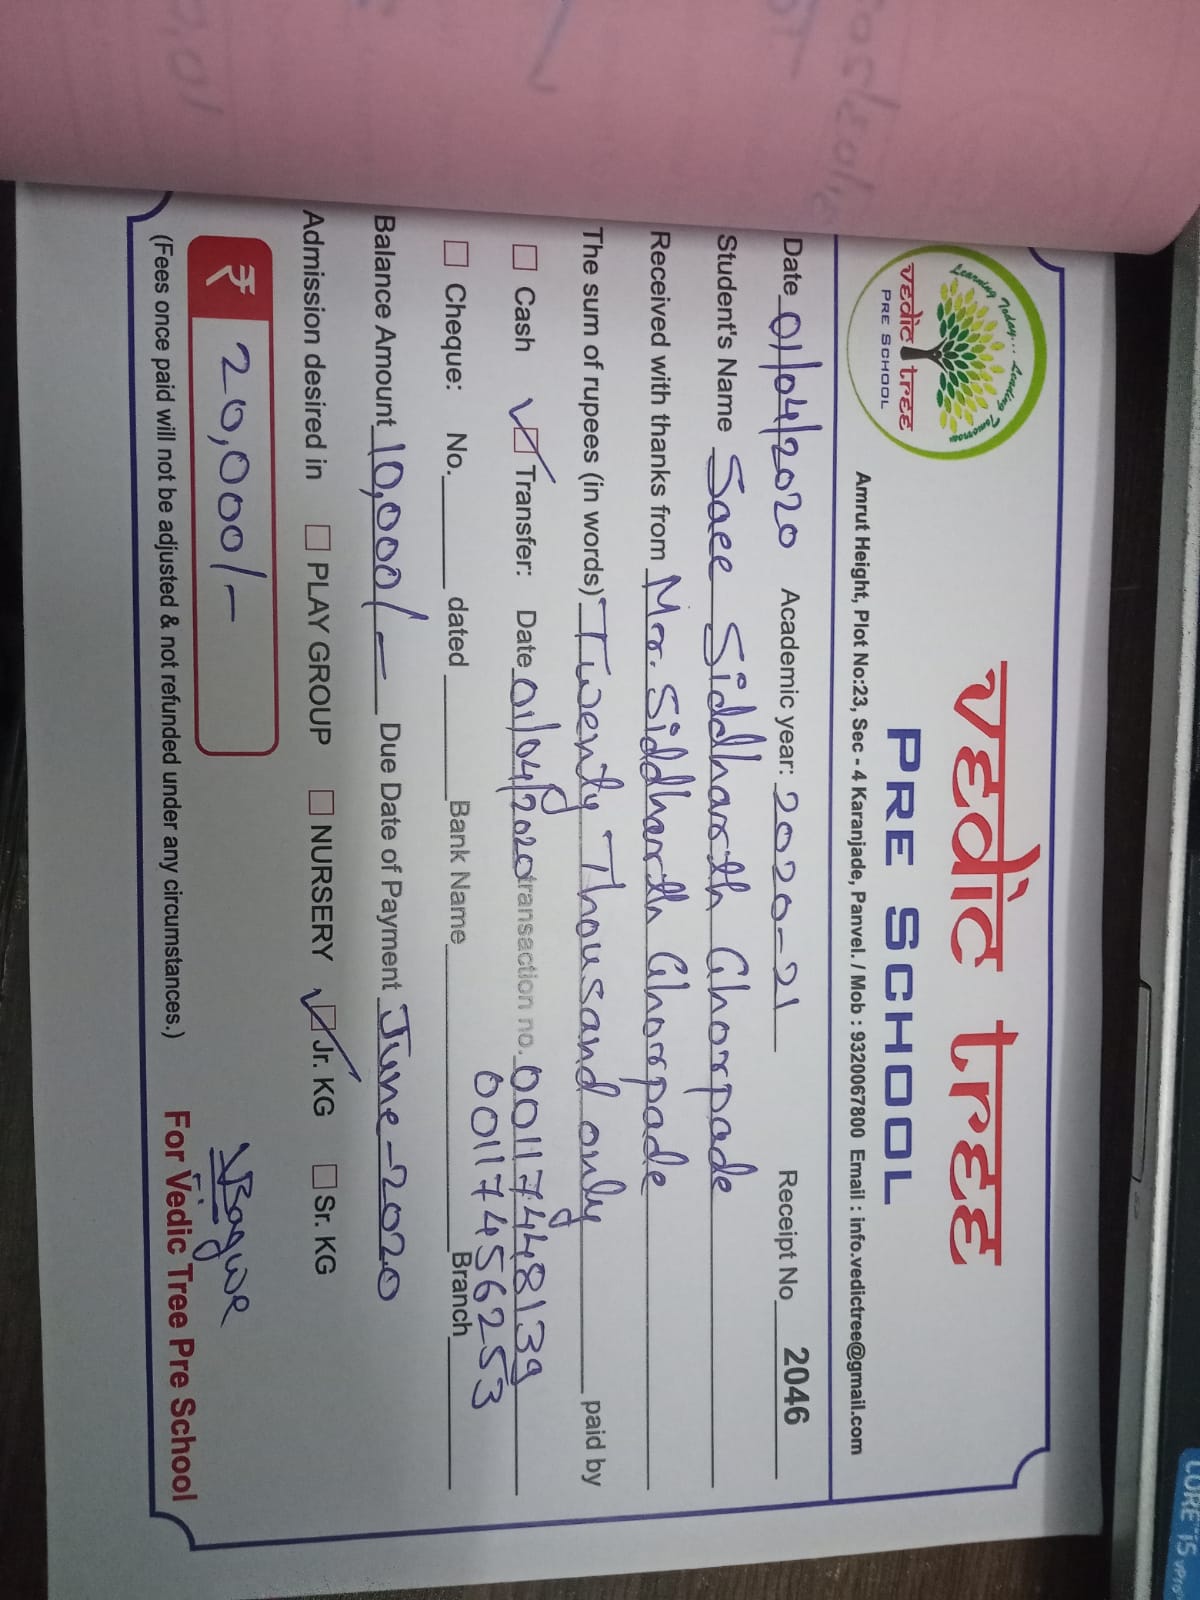 Learning Today... Leading Tomorrow
vedic tree
PRE SCHOOL
vedic tree
PRE SCHOOL
Amrut Height, Plot No:23, Sec - 4 Karanjade, Panvel. / Mob : 9320067800 Email : info.vedictree@gmail.com
Date 01/04/2020 Academic year: 2020-21 Receipt No 2046
Student's Name Saee Siddharth Ghorpade
Received with thanks from Mr. Siddharth Ghorpade
The sum of rupees (in words) Twenty Thousand only paid by
Cash Transfer: Date 01/04/2020 transaction no. 001174448139
001174456253
Cheque: No. dated Bank Name Branch
Balance Amount 10,000/- Due Date of Payment June-2020
Admission desired in PLAY GROUP NURSERY Jr. KG Sr. KG
₹ 20,000/-
(Fees once paid will not be adjusted & not refunded under any circumstances.)
For Vedic Tree Pre School
CORE i5 vPro